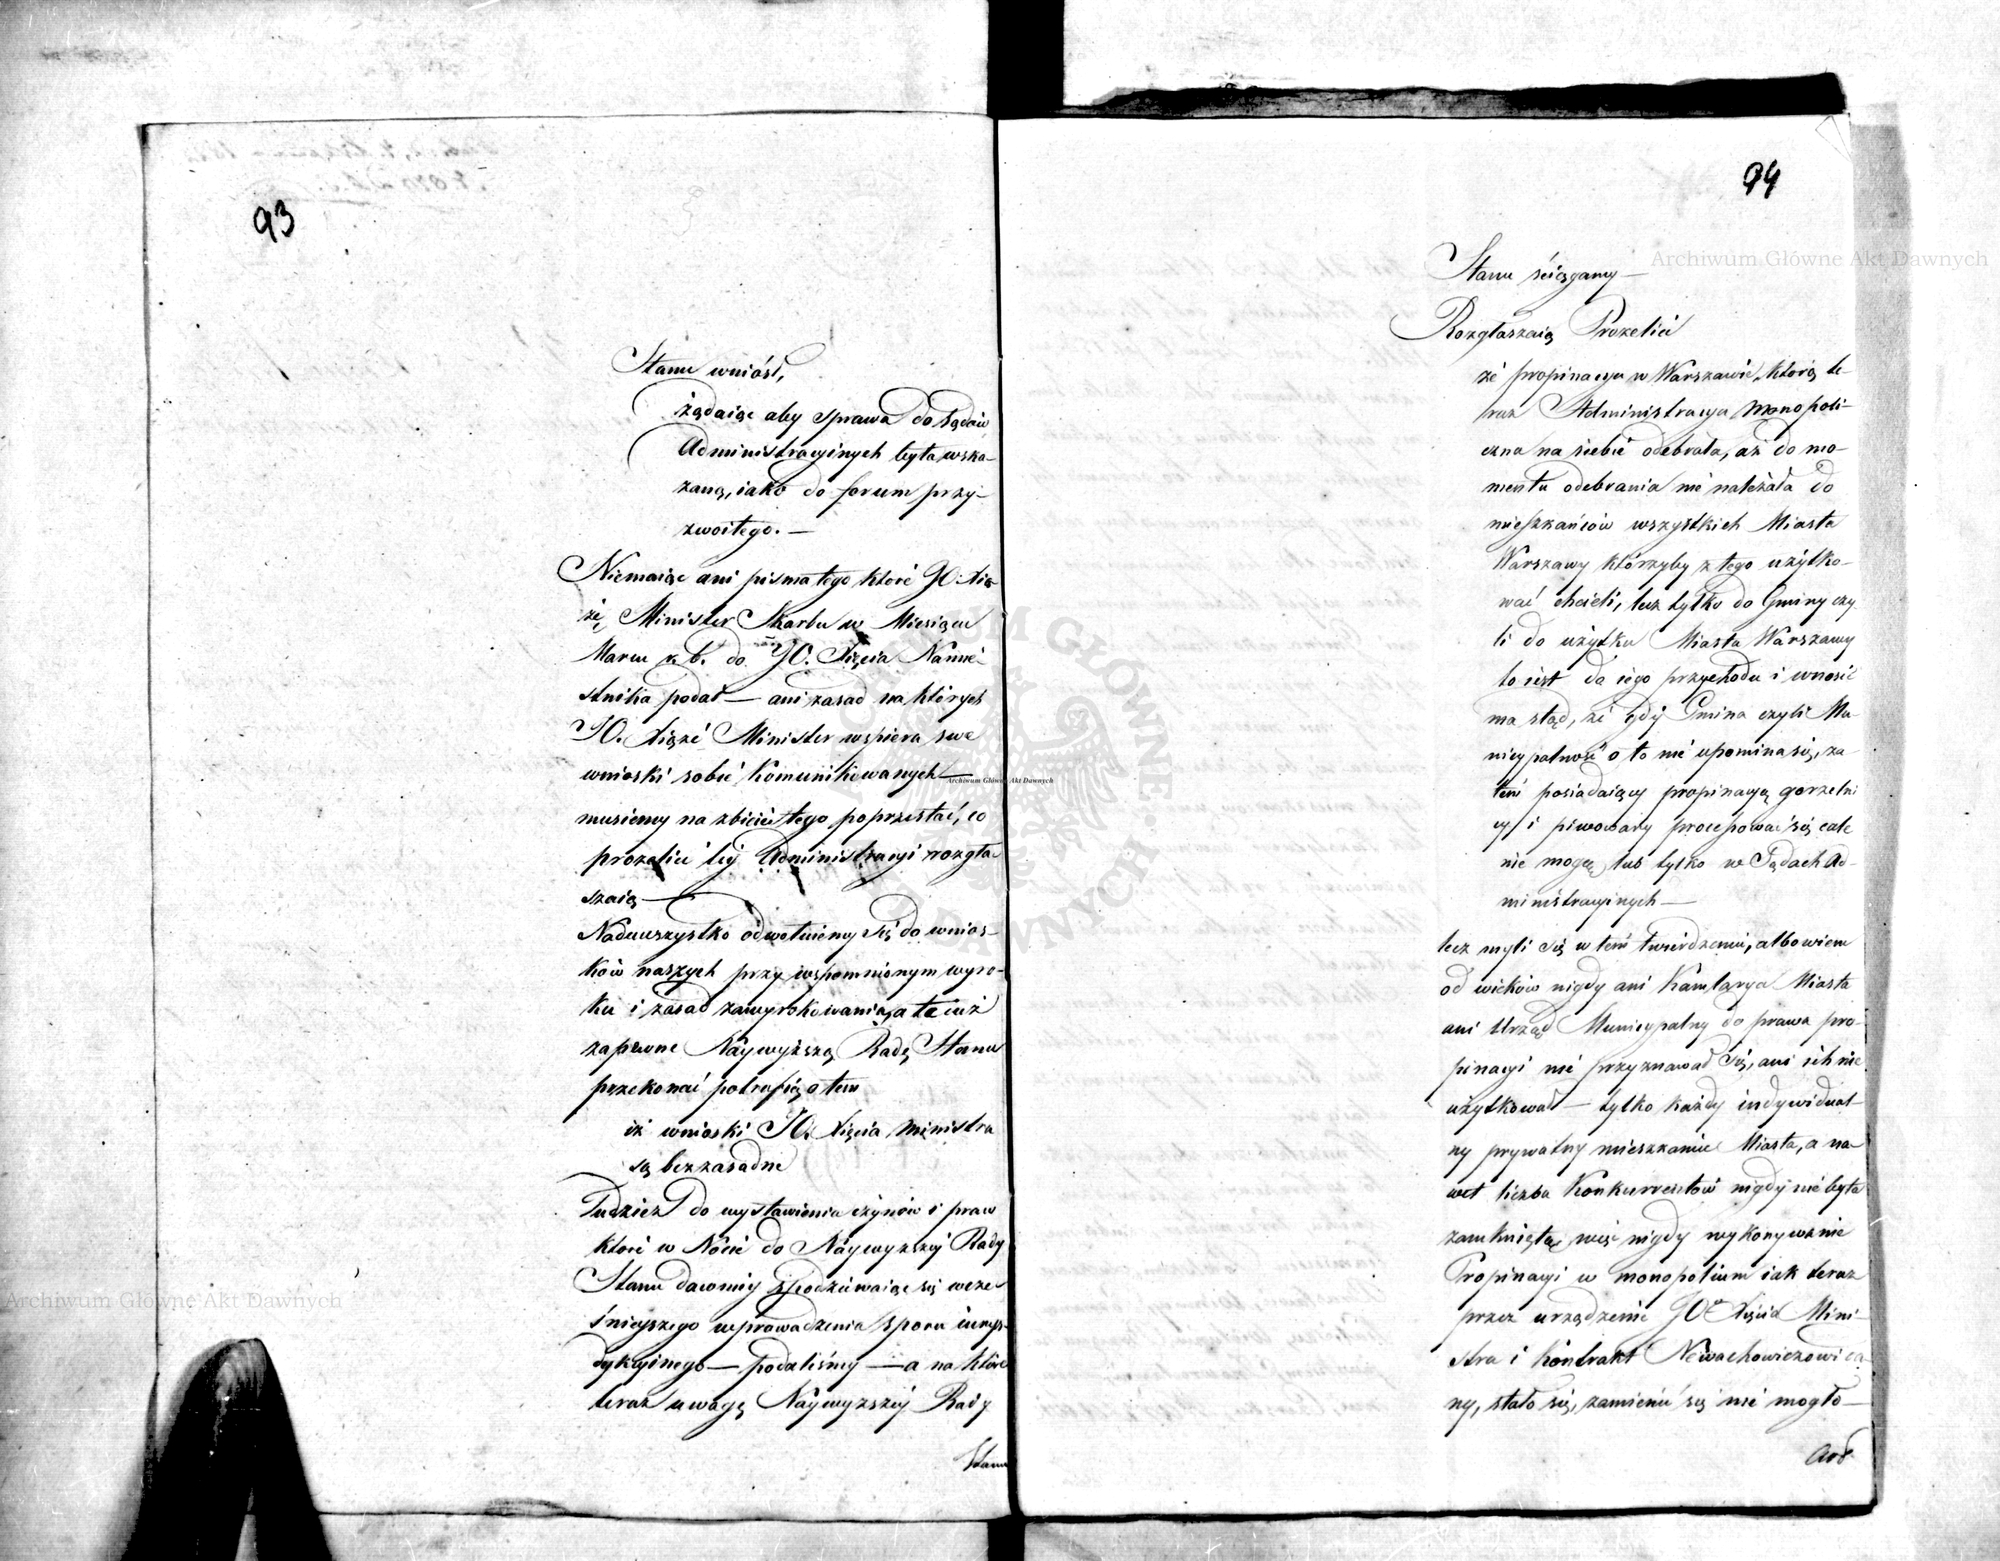 93
Stanu wniósł,
żądaiąc aby sprawa do Sądów
Administracyinych była wska-
zaną, iako do forum przy-
zwoitego. —
Niemaiąc ani pisma tego które JO. Xią-
żę Minister Skarbu w Miesiącu
Marcu r. b. do JO. Xięcia Namie-
stnika podał — ani zasad na których
JO. Xiąże Minister wspiera swe
wnioski sobie kommunikowanych —
musiemy na zbiciu tego poprzestać, co
prozelici tey Administracyi rozgła-
szaią —
Nadewszystko odwołuiemy się do wnios-
ków naszych przy wspomnionym wyro-
ku i zasad zawyrokowania, a te iuż
zapewne Naywyższą Radę Stanu
przekonać potrafią o tem
iż wnioski JO. Xięcia Ministra
są bezzasadne
Tudzież do wystawienia czynów i praw
które w Nócie do Naywyższey Rady
Stanu dawniey spodziewaiąc się wcze-
śnieyszego wprowadzenia sporu iurys-
dykcyinego — podaliśmy — a na które
teraz uwagę Naywyższey Rady
Stanu
94
Stanu ściągamy —
Rozgłaszaią Prozelici
że propinacya w Warszawie, którą te-
raz Administracya Monopoli-
czna na siebie odebrała, aż do mo-
mentu odebrania nie należała do
mieszkańców wszystkich Miasta
Warszawy którzyby z tego użytko-
wać chcieli, lecz tylko do Gminy czy-
li do użytku Miasta Warszawy
to iest do iego przychodu i wnosić
ma stąd, że gdy Gmina czyli Mu-
nicypalność o to nie upomina się, za-
tem posiadaiący propinacyą gorzelni
cy i piwowary processować się całe
nie mogą, lecz tylko w Sądach Ad-
ministracyinych —
lecz myli się w tem twierdzeniu, albowiem
od wieków nigdy ani Kamlarya Miasta
ani Urząd Municypalny do prawa pro-
pinacyi nie przyznawał się, ani ich nie
użytkował — tylko każdy indywidual-
ny prywatny mieszkaniec Miasta, a na-
wet liczba Konkurrentów nigdy nie była
zamknięta, więc nigdy wykonywanie
Propinacyi w monopolium iak teraz
przez urządzenie JO. Xięcia Mini-
stra i kontrakt Newachowiczowi da-
ny, stało się, zamienić się nie mogło —